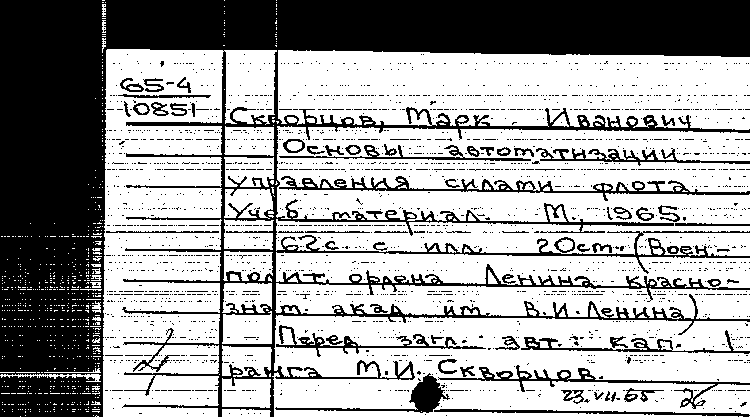 65-4
10851
Скворцов, Марк Иванович
Основы автоматизации
управления силами флота.
Учеб. материал. М., 1965.
62с. с илл. 20см. (Воен.-
полит. ордена Ленина красно-
знам. акад. им. В.И.Ленина).
Перед загл. авт.: кап. 1
ранга М.И. Скворцов.
23.VII.65 26